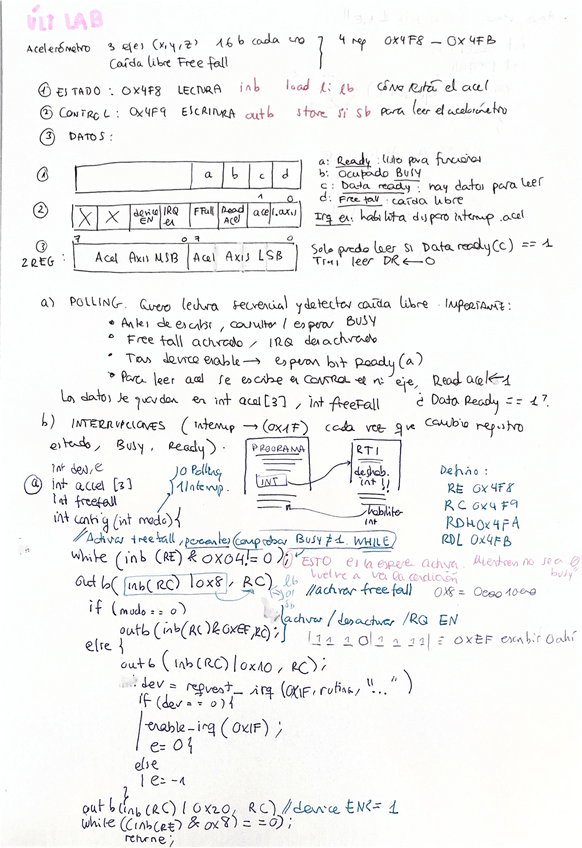 ÚLT LAB
Acelerómetro 3 ejes (x,y,z) 16b cada uno 4 reg 0x4F8 - 0x4FB
Caída libre Free fall
① ESTADO: 0x4F8 LECTURA inb load li lb cómo está el acel
② CONTROL: 0x4F9 ESCRITURA outb store si sb para leer el acelerómetro
③ DATOS:
① a b c d
a: Ready: listo para funcionar
b: Ocupado BUSY
c: Data ready: hay datos para leer
d: Free fall: caída libre
1 0
② X X device EN IRQ en FFall Read Acel acel.axis
Irq en: habilita disparo interrup. acel
③ 7 0 7 0
2 REG: Acel Axis MSB Acel Axis LSB
Solo puedo leer si Data ready(c) == 1
Tras leer DR ← 0
a) POLLING. Quiero lectura secuencial y detectar caída libre. IMPORTANTE:
• Antes de escribir, consultar / esperar BUSY
• Free fall activado, IRQ desactivado
• Tras device enable → esperar bit Ready (a)
• Para leer acel se escribe en CONTROL el nº eje, Read acel ← 1
Los datos se guardan en int acel[3], int freefall ¿Data Ready == 1?
b) INTERRUPCIONES (interrup → (0x1F) cada vez que cambie registro
estado, BUSY, Ready).
PROGRAMA
INT
RTI
deshab. int!!
habilitar int
Defino:
RE 0x4F8
RC 0x4F9
RDH 0x4FA
RDL 0x4FB
ⓐ int dev, e
int accel [3]
int freefall
int config (int modo) {
0 Polling
1 Interrup.
// Activar freefall, pero antes comprobar BUSY≠1. WHILE
while (inb (RE) & 0x04 != 0);
ESTO es la espera activa. Mientras no sea 0 busy
vuelve a ver la condición
outb( inb(RC) | 0x8, RC)
lb
or
sb
// activar freefall 0x8 = 00001000
if (modo == 0)
outb (inb(RC) & 0xEF, RC);
activar / desactivar IRQ EN
else {
|1 1 1 0|1 1 1 1| = 0xEF escribir 0 ahí
outb (inb(RC) | 0x10, RC);
dev = request_irq (0x1F, rutina, "...")
if (dev == 0) {
enable_irq (0x1F);
e = 0 }
else
e = -1
}
outb (inb (RC) | 0x20, RC) // device EN = 1
while ((inb(RE) & 0x8) == 0);
return e;